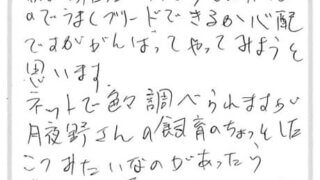 のでうまくブリードできるか心配
ですががんばってやってみようと
思います。
ネットで色々調べられますが
月夜野さんの飼育のちょっとした
こつみたいなのがあったら